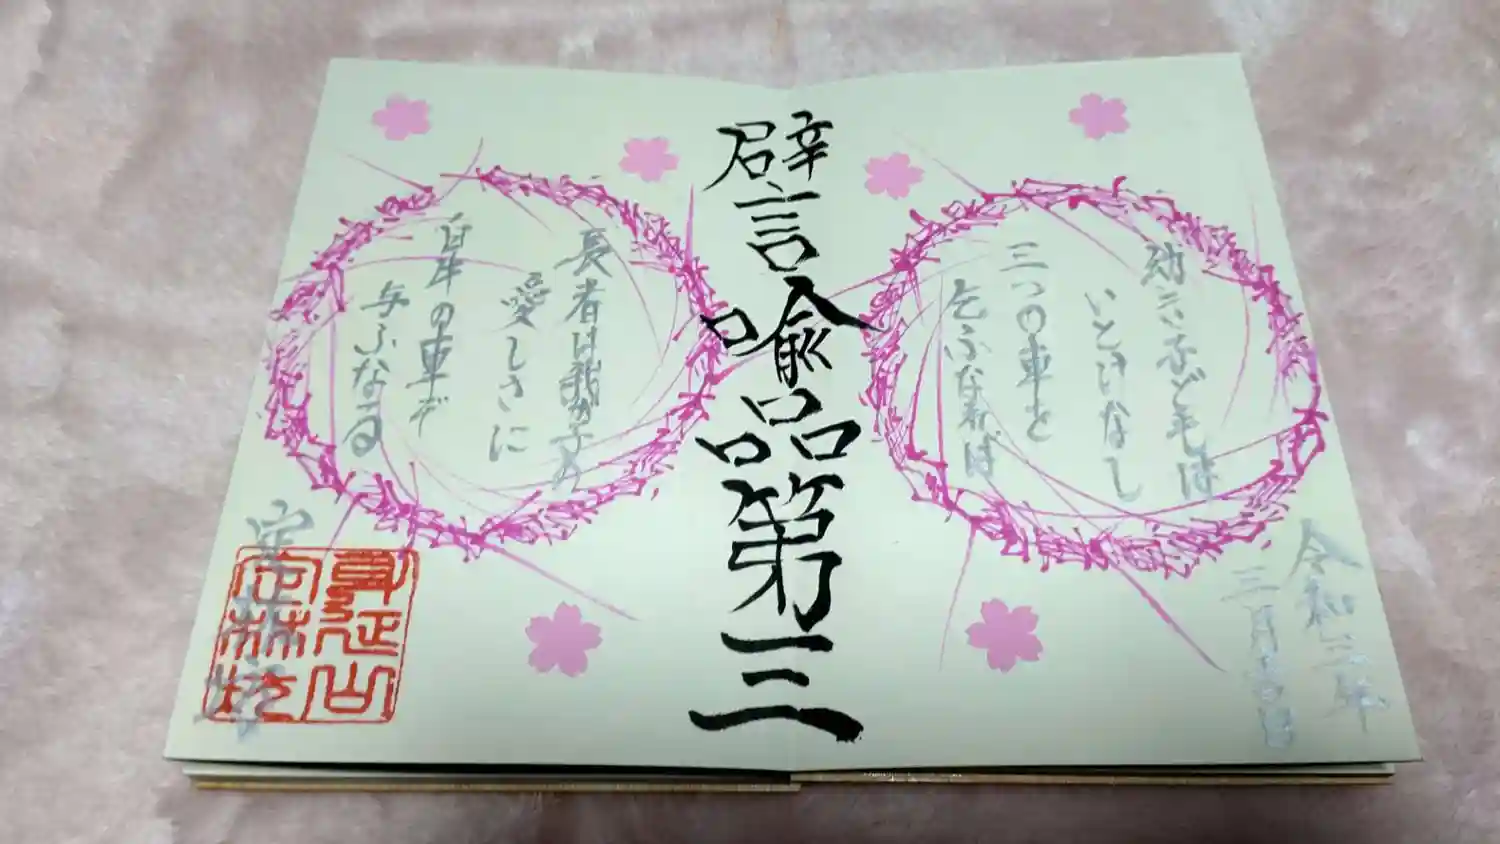 譬喩品第三
幼き子どもは
いとけなし
三つの車を
乞ふなれば
長者は我が子の
愛しさに
白牛の車ぞ
与ふなる
令和三年
三月吉日
定林坊
身延山
定林坊